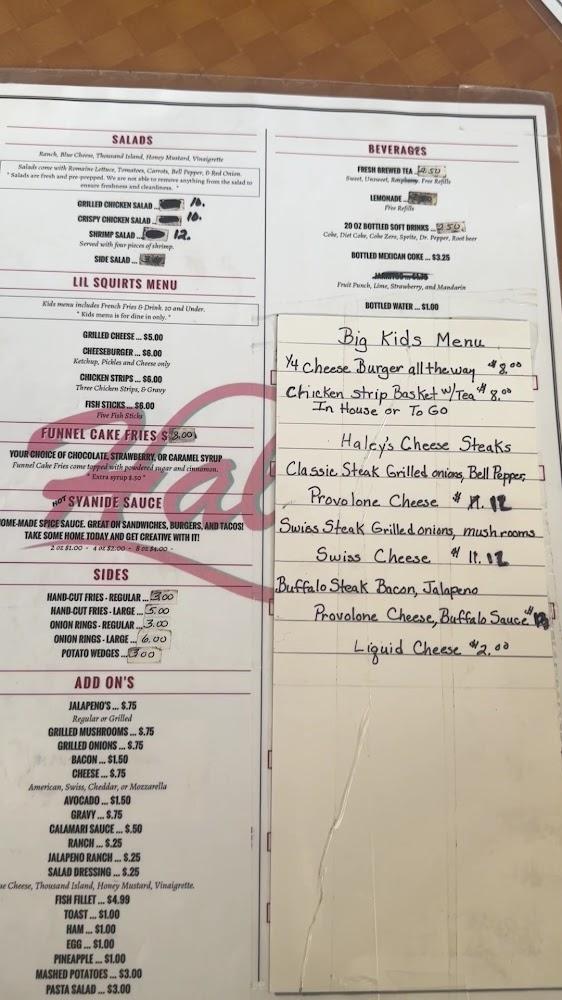 SALADS
Ranch, Blue Cheese, Thousand Island, Honey Mustard, Vinaigrette
Salads come with Romaine Lettuce, Tomatoes, Carrots, Bell Pepper, & Red Onion.
* Salads are fresh and pre-prepped. We are not able to remove anything from the salad to
ensure freshness and cleanliness. *
GRILLED CHICKEN SALAD ... 10.
CRISPY CHICKEN SALAD ... 10.
SHRIMP SALAD ... 12.
Served with four pieces of shrimp.
SIDE SALAD ...
LIL SQUIRTS MENU
Kids menu includes French Fries & Drink. 10 and Under.
* Kids menu is for dine in only. *
GRILLED CHEESE ... $5.00
CHEESEBURGER ... $6.00
Ketchup, Pickles and Cheese only
CHICKEN STRIPS ... $6.00
Three Chicken Strips, & Gravy
FISH STICKS ... $6.00
Five Fish Sticks
FUNNEL CAKE FRIES $ 8.00
YOUR CHOICE OF CHOCOLATE, STRAWBERRY, OR CARAMEL SYRUP
Funnel Cake Fries come topped with powdered sugar and cinnamon.
* Extra syrup $.50 *
HOT SYANIDE SAUCE
OME-MADE SPICE SAUCE. GREAT ON SANDWICHES, BURGERS, AND TACOS!
TAKE SOME HOME TODAY AND GET CREATIVE WITH IT!
2 oz $1.00 - 4 oz $2.00 - 8 oz $4.00 -
SIDES
HAND-CUT FRIES - REGULAR ... 3.00
HAND-CUT FRIES - LARGE ... 5.00
ONION RINGS - REGULAR ... 3.00
ONION RINGS - LARGE ... 6.00
POTATO WEDGES ... 3.00
ADD ON'S
JALAPENO'S ... $.75
Regular or Grilled
GRILLED MUSHROOMS ... $.75
GRILLED ONIONS ... $.75
BACON ... $1.50
CHEESE ... $.75
American, Swiss, Cheddar, or Mozzarella
AVOCADO ... $1.50
GRAVY ... $.75
CALAMARI SAUCE ... $.50
RANCH ... $.25
JALAPENO RANCH ... $.25
SALAD DRESSING ... $.25
ue Cheese, Thousand Island, Honey Mustard, Vinaigrette.
FISH FILLET ... $4.99
TOAST ... $1.00
HAM ... $1.00
EGG ... $1.00
PINEAPPLE ... $1.00
MASHED POTATOES ... $3.00
PASTA SALAD ... $3.00
BEVERAGES
FRESH BREWED TEA 2.50
Sweet, Unsweet, Raspberry. Free Refills
LEMONADE ...
Free Refills
20 OZ BOTTLED SOFT DRINKS ... 2.50
Coke, Diet Coke, Coke Zero, Sprite, Dr. Pepper, Root beer
BOTTLED MEXICAN COKE ... $3.25
Fruit Punch, Lime, Strawberry, and Mandarin
BOTTLED WATER ... $1.00
Big Kids Menu
1/4 Cheese Burger all the way $8.00
Chicken Strip Basket w/Tea $8.00
In House or To Go
Haley's Cheese Steaks
Classic Steak Grilled onions, Bell Pepper,
Provolone Cheese $ 12
Swiss Steak Grilled onions, mushrooms
Swiss Cheese $ 11. 12
Buffalo Steak Bacon, Jalapeno
Provolone Cheese, Buffalo Sauce $
Liquid Cheese $2.00